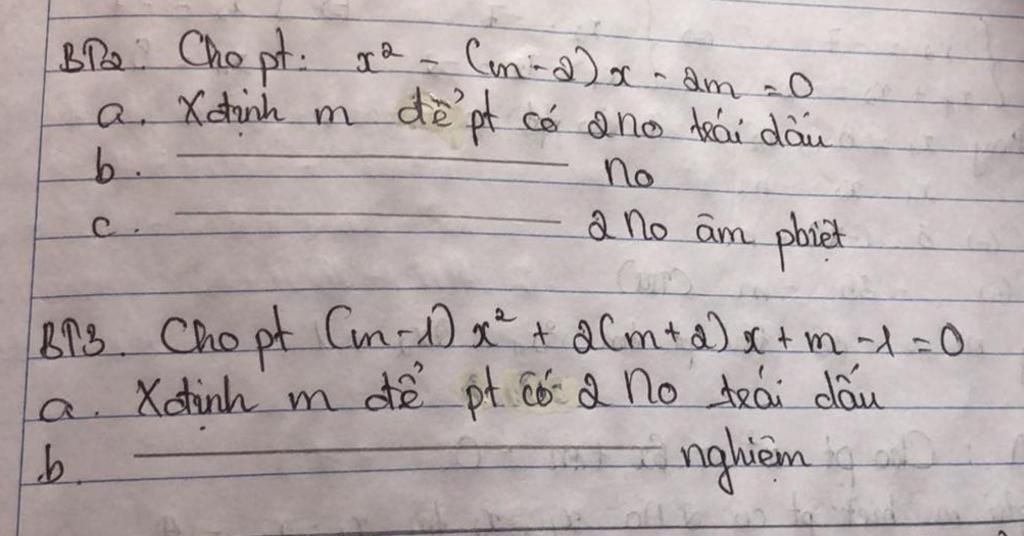 BT2: Cho pt: x² - (m-2)x - 2m = 0
a. Xđịnh m để pt có 2 no trái dấu
b. ———————— no
c. ———————— 2 no âm pbiệt
BT3. Cho pt (m-1)x² + 2(m+2)x + m - 1 = 0
a. Xđịnh m để pt có 2 no trái dấu
b. ———————— nghiệm